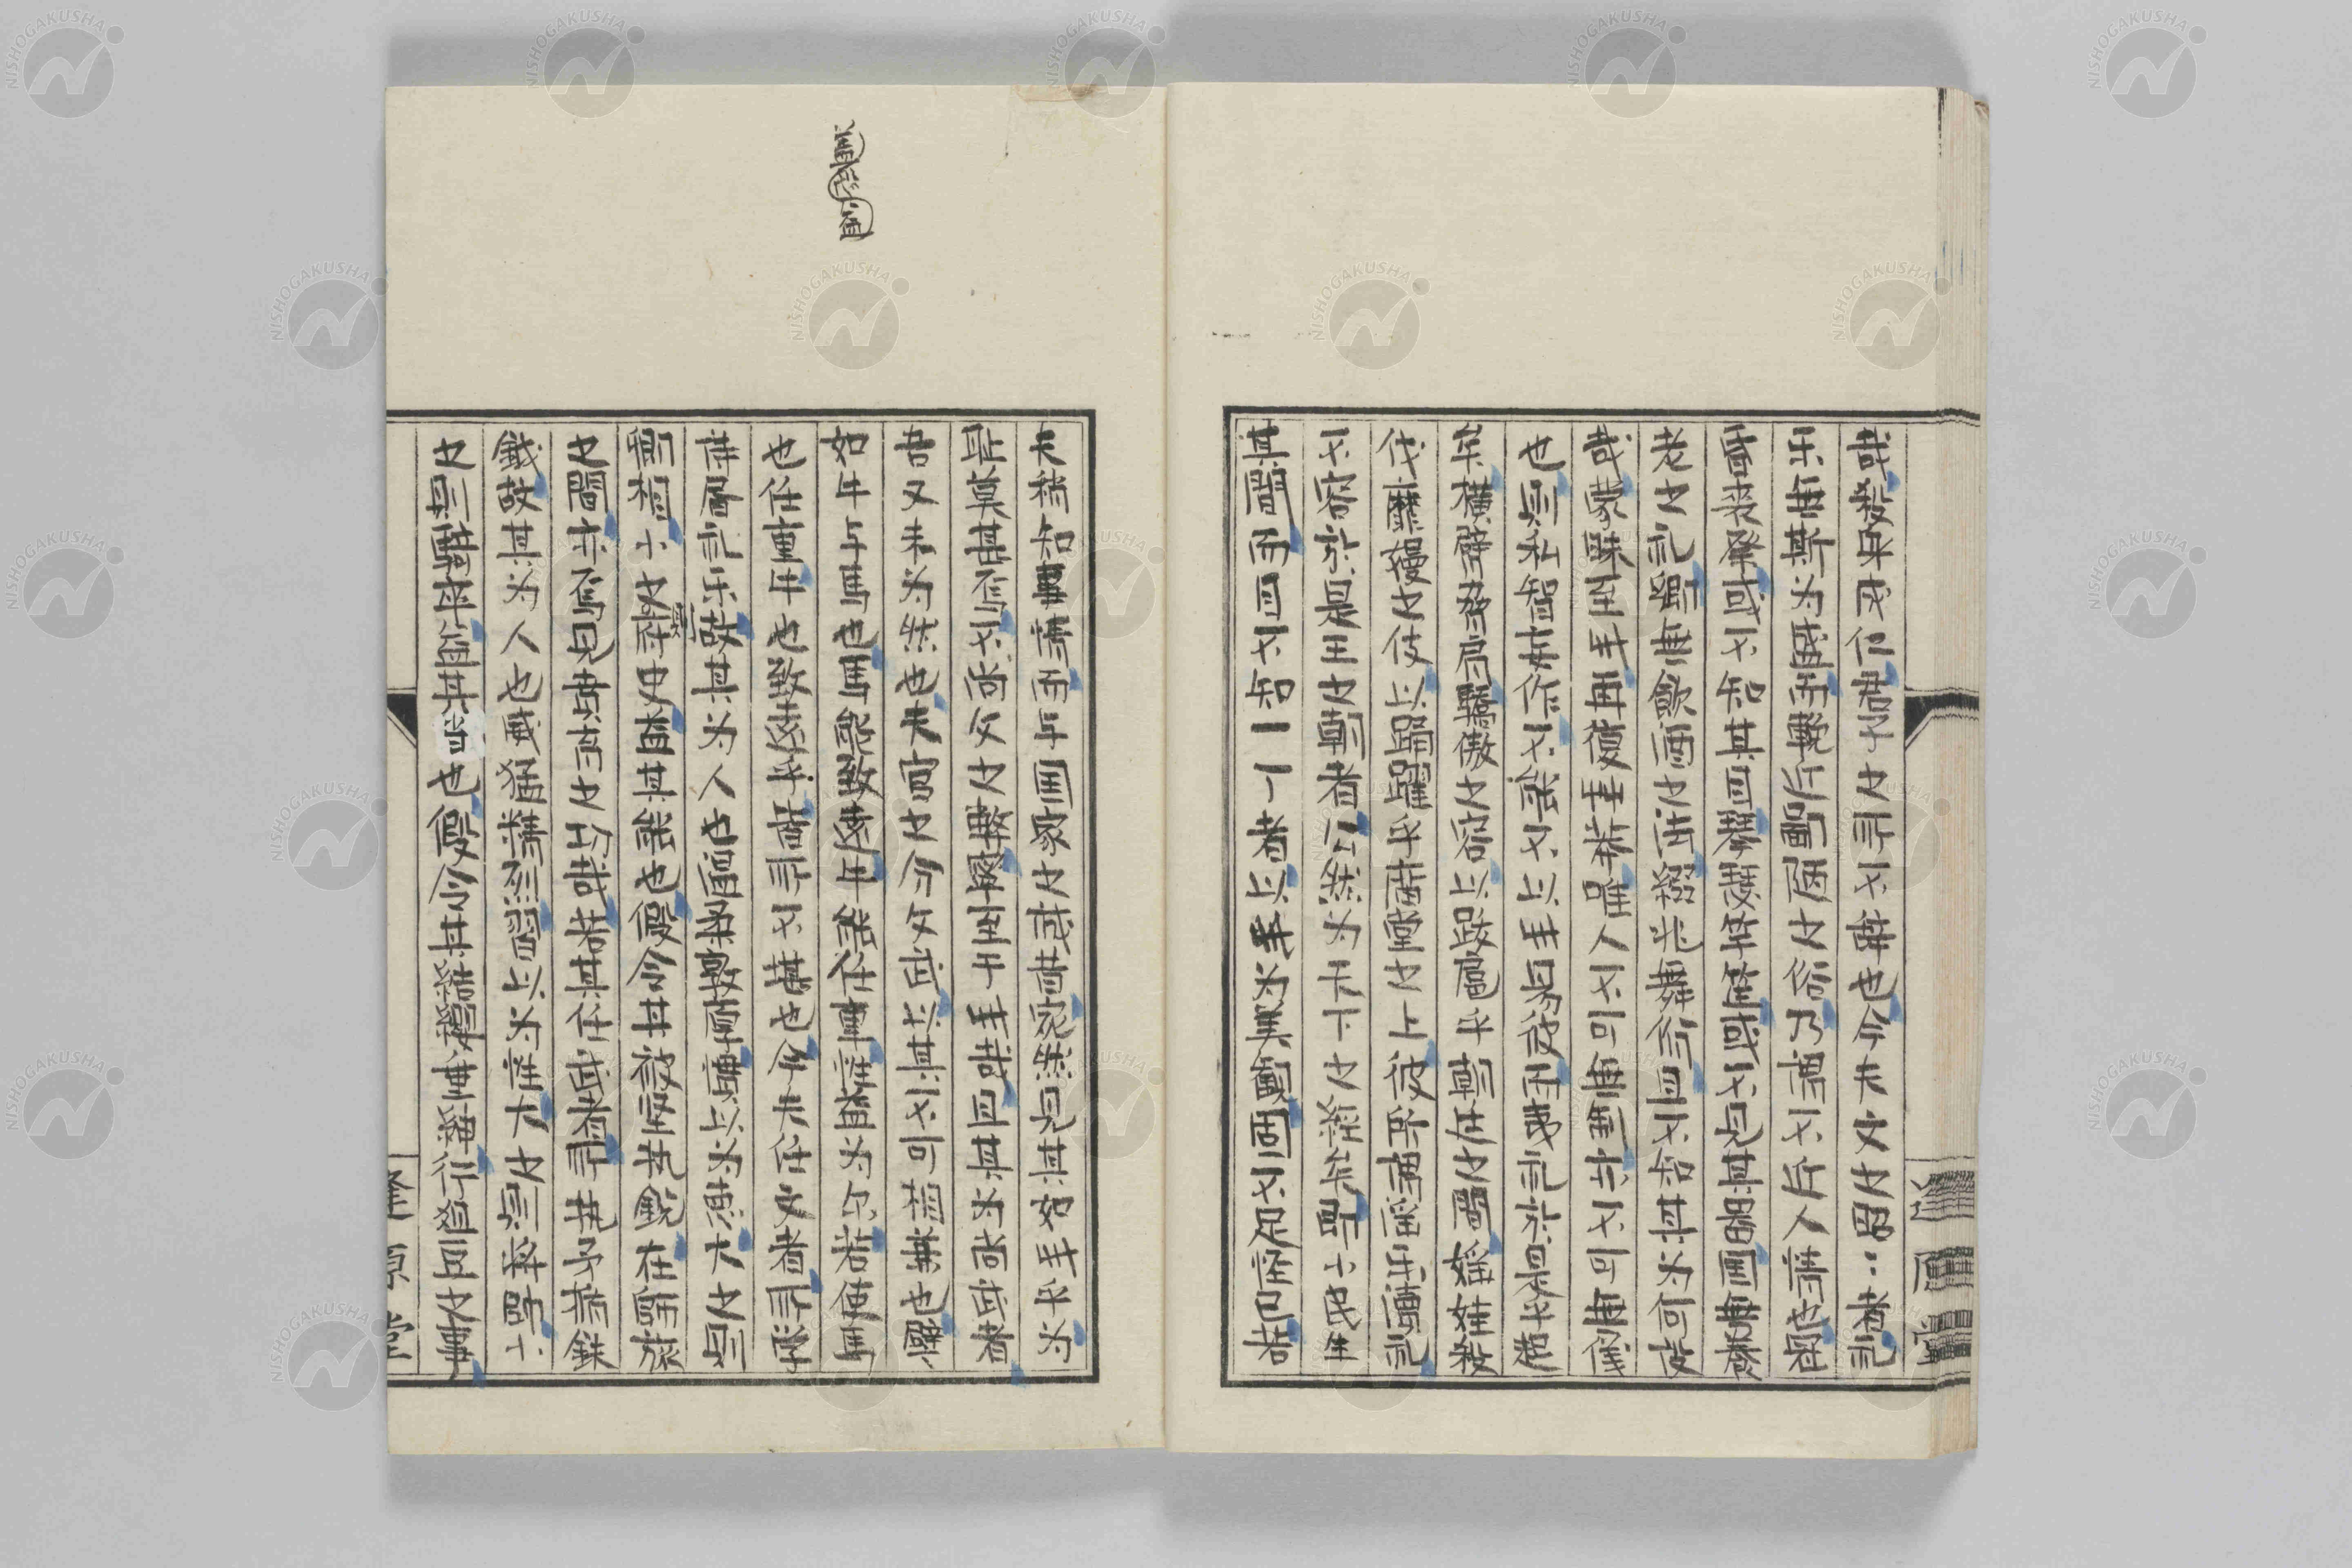 哉殺身成仁君子之所不辞也今夫文之墨〻者礼
乐無斯為盛而輓近鄙陋之俗乃謂不近人情也冠
昏喪祭或不知其目琴瑟竽笙或不見其器国無養
老之礼郷無飲酒之法綴兆舞佾且不知其為何徒
哉蒙昧至此再復其举唯人不可無制亦不可無儀
也則私智妄作不能不以此易彼而夷礼於是乎進
矣横臂脅肩驕傲之容以跋扈乎朝廷之間婬娃殺
伐靡嫚之伎以踊躍乎庿堂之上彼所謂淫乐凟礼
不容於是王之朝者公然为天下之経矣即小民生
其間而目不知一丁者以此为美観固不足怪已若
夫稍知事情而与国家之哉昔宛然見其如此乎为
耻莫甚焉不尚文之弊至于此哉且其为尚武者
吾又未为然也夫官之分文武以其不可相兼也譬
如牛与馬也馬能致遠牛能任重性益为尔若使馬
也任重牛也致遠乎皆所不堪也今夫任文者所学
詩層礼乐故其为人也温柔敦厚慣以为徳大之則
卿相小之府史益其能也假令其被堅执鋭在師旅
之間亦焉見其有之功哉若其任武者所执予㦸鈇
鉞故其为人也威猛精烈習以为性大之則将師小
之則騎卒益其当也假令其結纓垂紳行俎豆之事
隆原堂